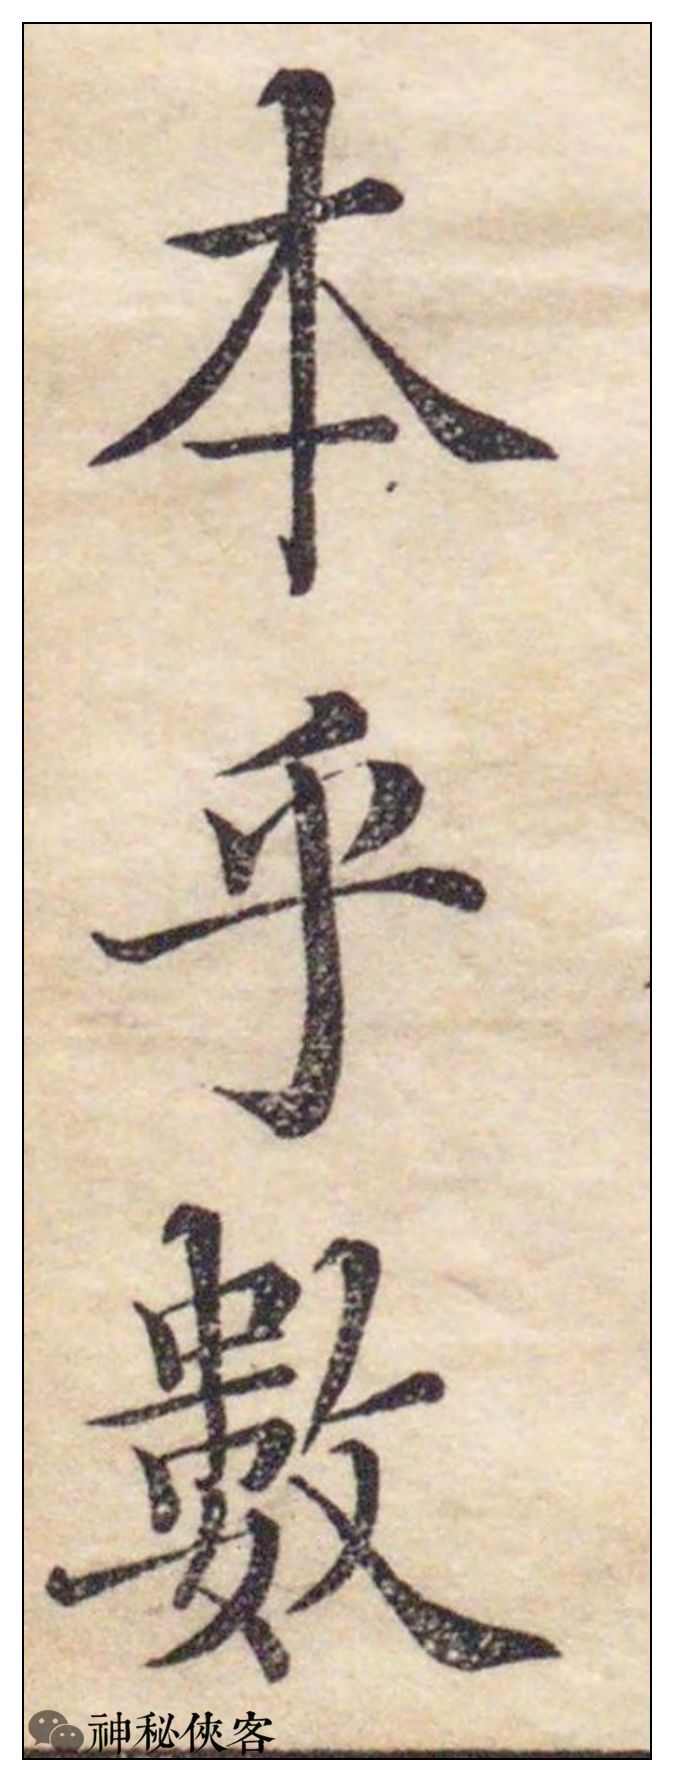 本乎數
神秘俠客